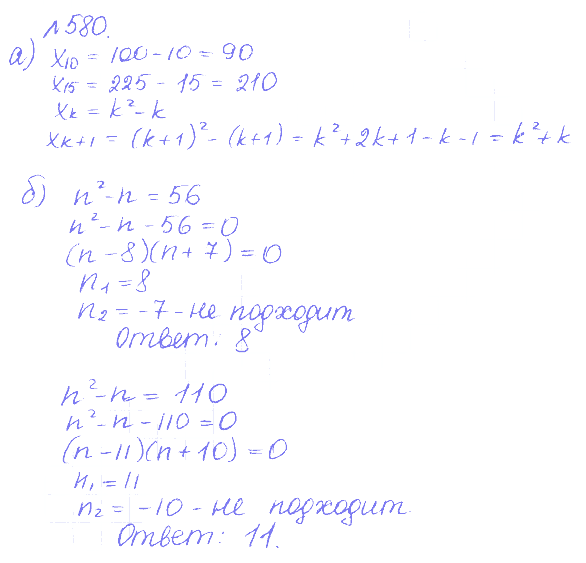 №580.
а) x₁₀ = 100 - 10 = 90
x₁₅ = 225 - 15 = 210
xₖ = k² - k
xₖ₊₁ = (k+1)² - (k+1) = k² + 2k + 1 - k - 1 = k² + k
б) n² - n = 56
n² - n - 56 = 0
(n - 8)(n + 7) = 0
n₁ = 8
n₂ = -7 - не подходит
Ответ: 8
n² - n = 110
n² - n - 110 = 0
(n - 11)(n + 10) = 0
n₁ = 11
n₂ = -10 - не подходит.
Ответ: 11.